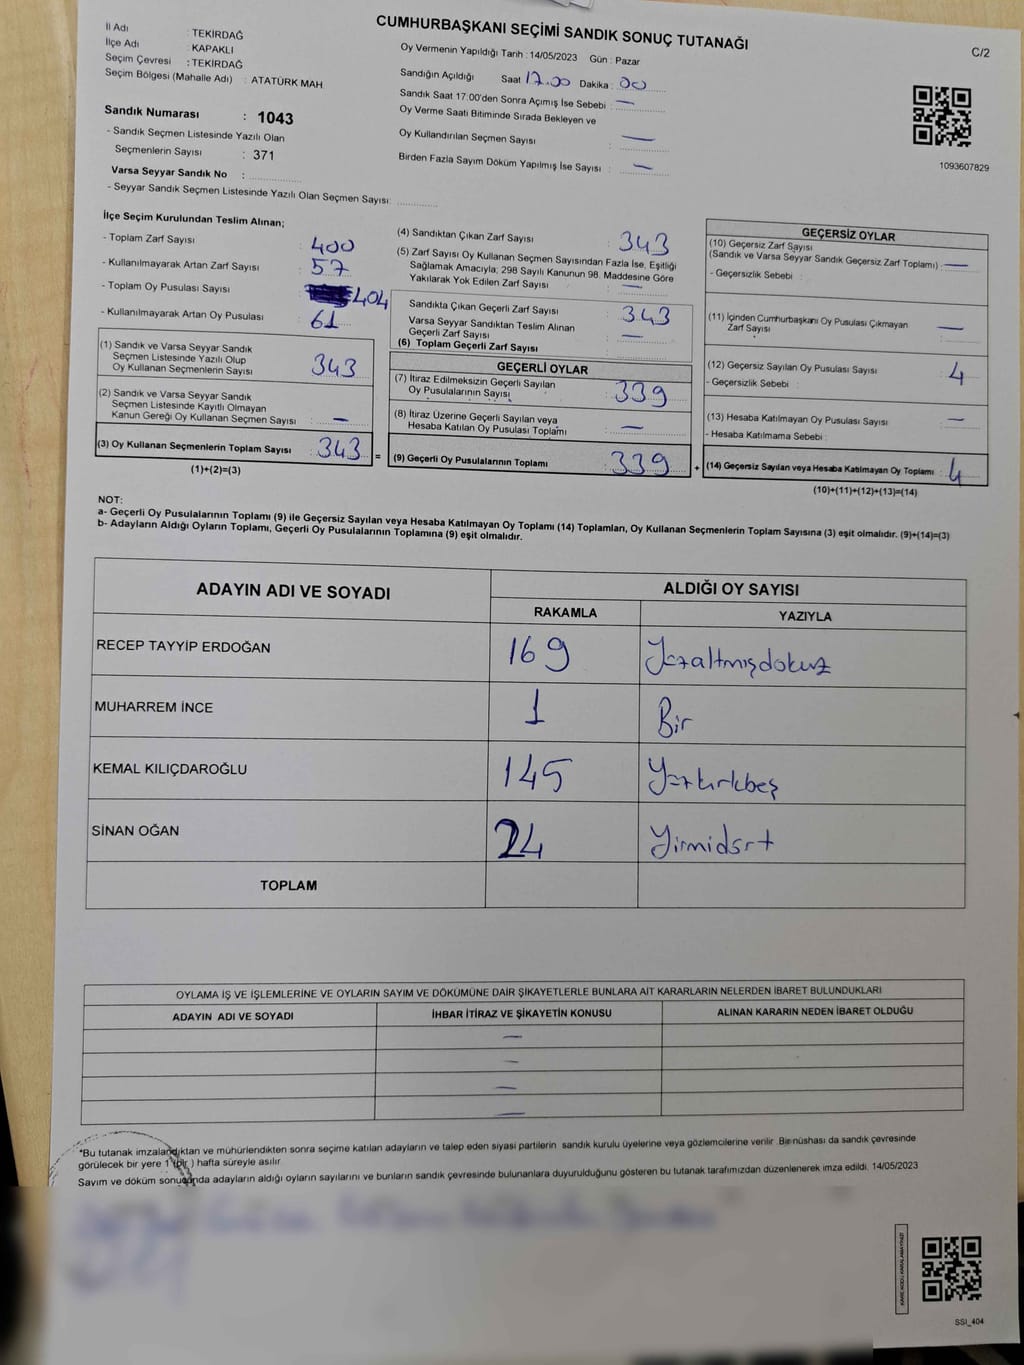 CUMHURBAŞKANI SEÇİMİ SANDIK SONUÇ TUTANAĞI
C/2
İl Adı : TEKİRDAĞ
İlçe Adı : KAPAKLI
Seçim Çevresi : TEKİRDAĞ
Seçim Bölgesi (Mahalle Adı) : ATATÜRK MAH
Sandık Numarası : 1043
- Sandık Seçmen Listesinde Yazılı Olan
Seçmenlerin Sayısı : 371
Varsa Seyyar Sandık No :
- Seyyar Sandık Seçmen Listesinde Yazılı Olan Seçmen Sayısı:
Oy Vermenin Yapıldığı Tarih : 14/05/2023 Gün : Pazar
Sandığın Açıldığı Saat 17.00 Dakika : 00
Sandık Saat 17:00'den Sonra Açımış İse Sebebi : —
Oy Verme Saati Bitiminde Sırada Bekleyen ve
Oy Kullandırılan Seçmen Sayısı : —
Birden Fazla Sayım Döküm Yapılmış İse Sayısı : —
1093607829
İlçe Seçim Kurulundan Teslim Alınan;
- Toplam Zarf Sayısı : 400
- Kullanılmayarak Artan Zarf Sayısı : 57
- Toplam Oy Pusulası Sayısı : 404
- Kullanılmayarak Artan Oy Pusulası : 61
(1) Sandık ve Varsa Seyyar Sandık
Seçmen Listesinde Yazılı Olup
Oy Kullanan Seçmenlerin Sayısı : 343
(2) Sandık ve Varsa Seyyar Sandık
Seçmen Listesinde Kayıtlı Olmayan
Kanun Gereği Oy Kullanan Seçmen Sayısı : —
(3) Oy Kullanan Seçmenlerin Toplam Sayısı : 343 =
(1)+(2)=(3)
(4) Sandıktan Çıkan Zarf Sayısı : 343
(5) Zarf Sayısı Oy Kullanan Seçmen Sayısından Fazla İse, Eşitliği
Sağlamak Amacıyla; 298 Sayılı Kanunun 98. Maddesine Göre
Yakılarak Yok Edilen Zarf Sayısı : —
Sandıkta Çıkan Geçerli Zarf Sayısı : 343
Varsa Seyyar Sandıktan Teslim Alınan
Geçerli Zarf Sayısı : —
(6) Toplam Geçerli Zarf Sayısı :
GEÇERLİ OYLAR
(7) İtiraz Edilmeksizin Geçerli Sayılan
Oy Pusulalarının Sayısı : 339
(8) İtiraz Üzerine Geçerli Sayılan veya
Hesaba Katılan Oy Pusulası Toplamı : —
(9) Geçerli Oy Pusulalarının Toplamı : 339 +
GEÇERSİZ OYLAR
(10) Geçersiz Zarf Sayısı
(Sandık ve Varsa Seyyar Sandık Geçersiz Zarf Toplamı) : —
- Geçersizlik Sebebi :
(11) İçinden Cumhurbaşkanı Oy Pusulası Çıkmayan
Zarf Sayısı : —
(12) Geçersiz Sayılan Oy Pusulası Sayısı : 4
- Geçersizlik Sebebi :
(13) Hesaba Katılmayan Oy Pusulası Sayısı : —
- Hesaba Katılmama Sebebi :
(14) Geçersiz Sayılan veya Hesaba Katılmayan Oy Toplamı : 4
(10)+(11)+(12)+(13)=(14)
NOT:
a- Geçerli Oy Pusulalarının Toplamı (9) ile Geçersiz Sayılan veya Hesaba Katılmayan Oy Toplamı (14) Toplamları, Oy Kullanan Seçmenlerin Toplam Sayısına (3) eşit olmalıdır. (9)+(14)=(3)
b- Adayların Aldığı Oyların Toplamı, Geçerli Oy Pusulalarının Toplamına (9) eşit olmalıdır.
ADAYIN ADI VE SOYADI ALDIĞI OY SAYISI
RAKAMLA YAZIYLA
RECEP TAYYİP ERDOĞAN 169 Yüzaltmışdokuz
MUHARREM İNCE 1 Bir
KEMAL KILIÇDAROĞLU 145 Yüzkırkbeş
SİNAN OĞAN 24 Yirmidört
TOPLAM
OYLAMA İŞ VE İŞLEMLERİNE VE OYLARIN SAYIM VE DÖKÜMÜNE DAİR ŞİKAYETLERLE BUNLARA AİT KARARLARIN NELERDEN İBARET BULUNDUKLARI
ADAYIN ADI VE SOYADI İHBAR İTİRAZ VE ŞİKAYETİN KONUSU ALINAN KARARIN NEDEN İBARET OLDUĞU
—
—
—
—
*Bu tutanak imzalandıktan ve mühürlendikten sonra seçime katılan adayların ve talep eden siyasi partilerin sandık kurulu üyelerine veya gözlemcilerine verilir. Bir nüshası da sandık çevresinde
görülecek bir yere 1 (bir ) hafta süreyle asılır.
Sayım ve döküm sonucunda adayların aldığı oyların sayılarını ve bunların sandık çevresinde bulunanlara duyurulduğunu gösteren bu tutanak tarafımızdan düzenlenerek imza edildi. 14/05/2023
KARE KODU KARALAMAYINIZ!
SSI_404